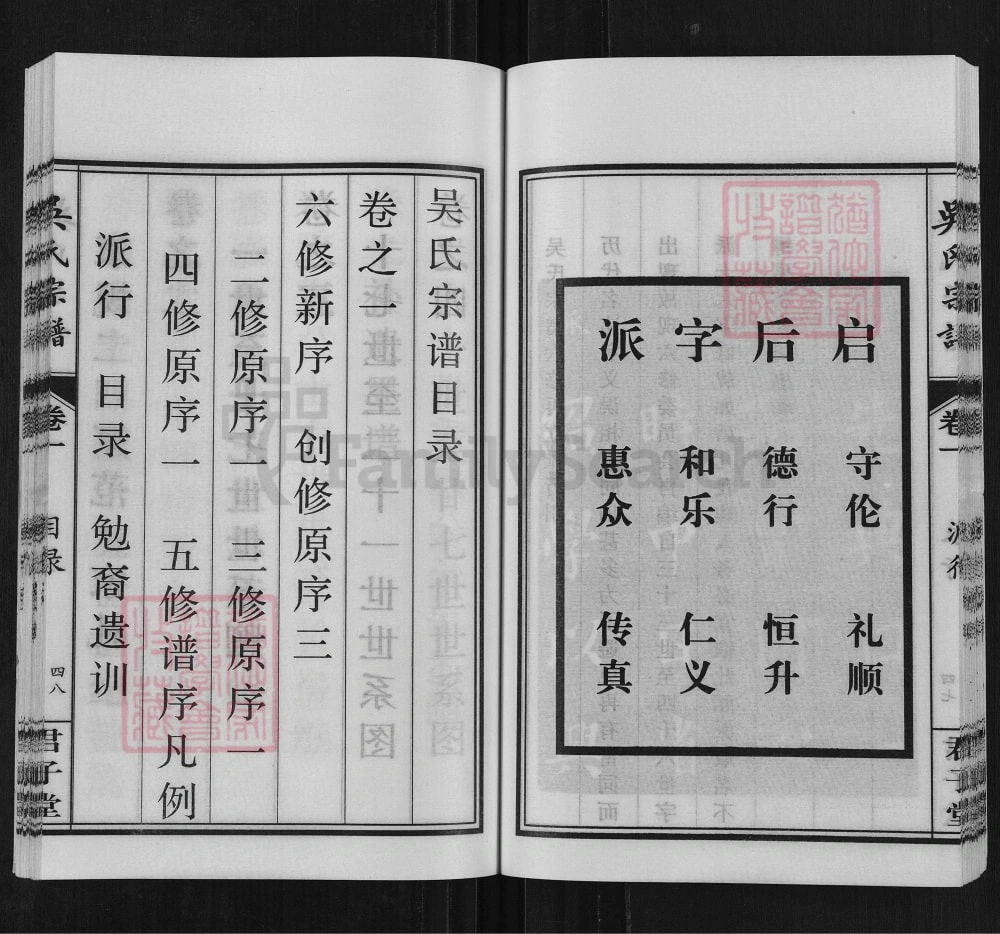 吴氏宗谱
卷一
派行
四七
君子堂
启后字派
守伦 礼顺
德行 恒升
和乐 仁义
惠众 传真
吴氏宗谱目录
卷之一
六修新序 创修原序三
二修原序一 三修原序一
四修原序一 五修谱序凡例
派行 目录 勉裔遗训
吴氏宗谱
卷一
目录
四八
君子堂
FamilySearch